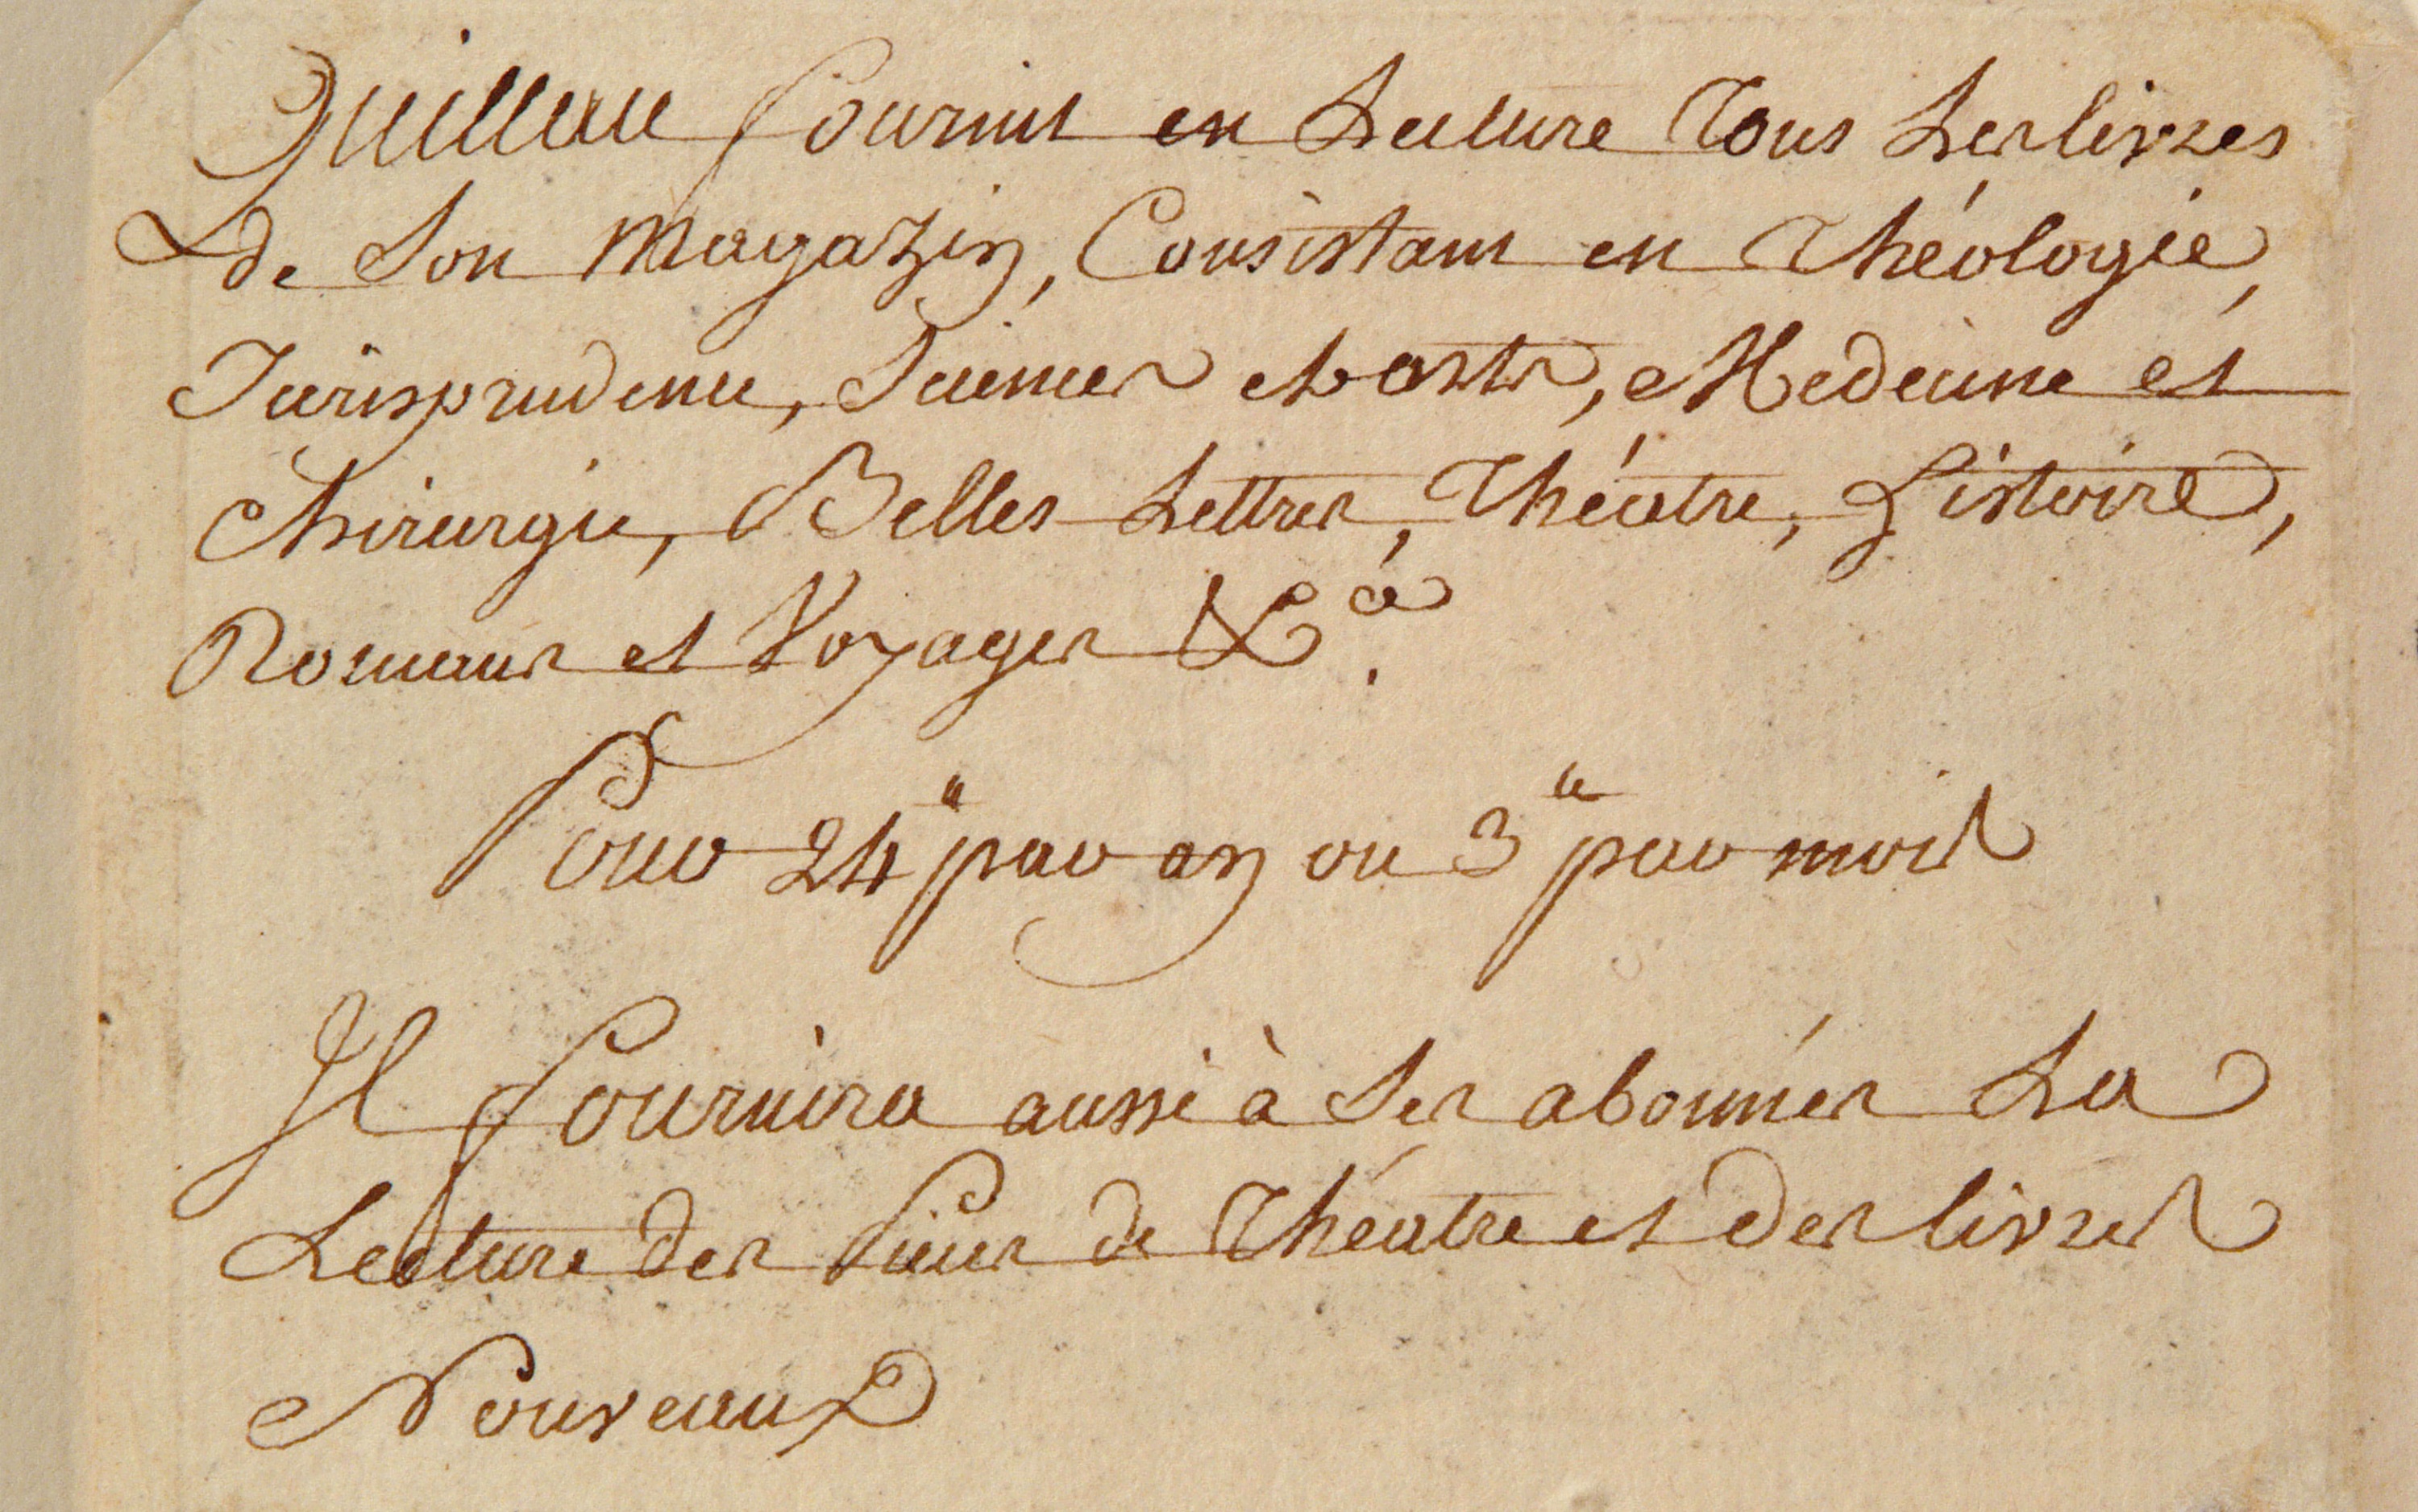 Quillau fournit en Lecture Tous Les livres
de Son Magazin, Consistant en Théologie,
Jurisprudence, Sciences et arts, Medecine et
Chirurgie, Belles Lettres, Théatre, Histoire,
Romans et Voyages &.ª
Pour 24 ᵗᵗ par an ou 3 ᵗᵗ par mois
Il fournira aussi à Ses abonnés La
Lecture des Pieces de Théatre et des livres
Nouveaux